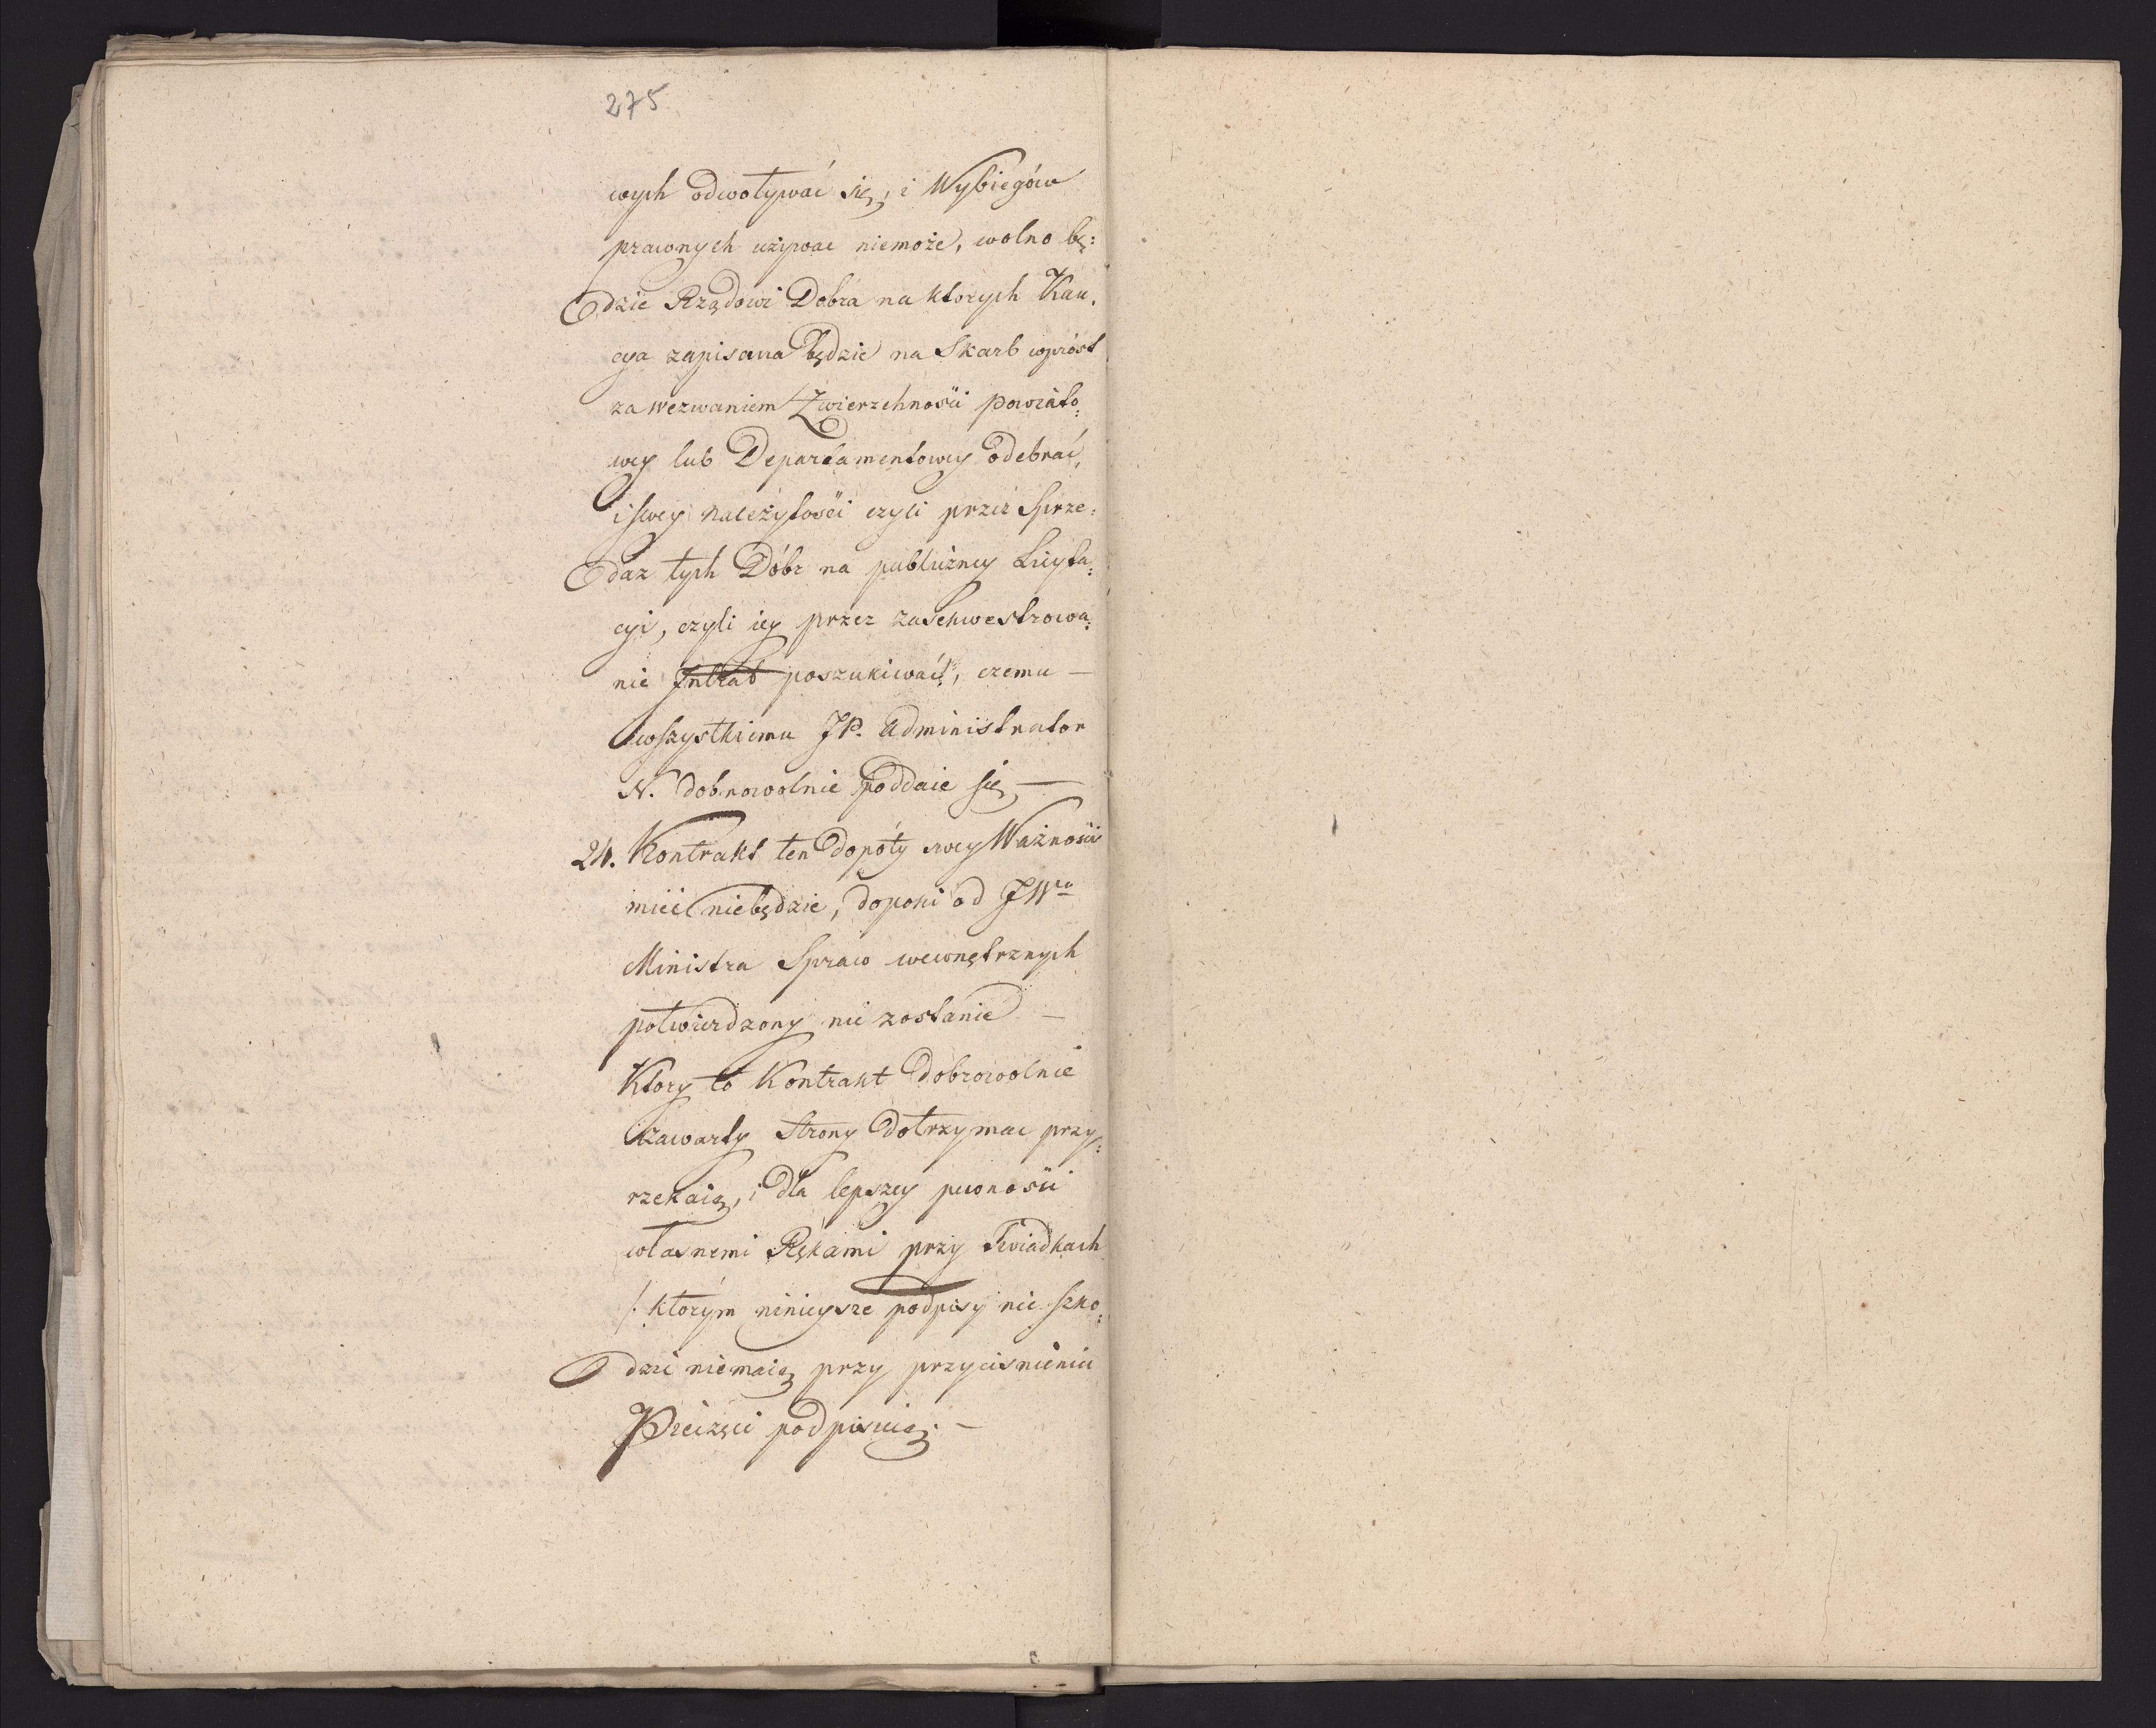 275
wych odwoływać się, i Wybiegów
prawnych używac niemoże, wolno bę:
dzie Rządowi Dobra na ktorych Kau,
cya zapisana będzie na Skarb wprost
za wezwaniem Zwierzchności powiato:
wey lub Departamentowey odebrać,
i swey należytości czyli przez Sprze:
daz tych Dóbr na publiczney Licyta:
cyi, czyli iey przez zasekwestrowa:
nie Intrat poszukiwać, czemu —
wszystkiemu JP. Administrator
N. dobrowolnie poddaie się —
24. Kontrakt ten dopóty swey Ważności
mieć niebędzie, dopoki od JWo
Ministra Spraw wewnętrznych
potwierdzony nie zostanie —
Ktory to Kontrakt dobrowolnie
zawarty Strony dotrzymac przy:
rzekaią, i dla lepszey pewności
własnemi Rękami przy Swiadkach
/: ktorým ninieysze podpisy nic szko:
dzić niemaią przy przycisnieniu
Pieczęci podpisuią. —